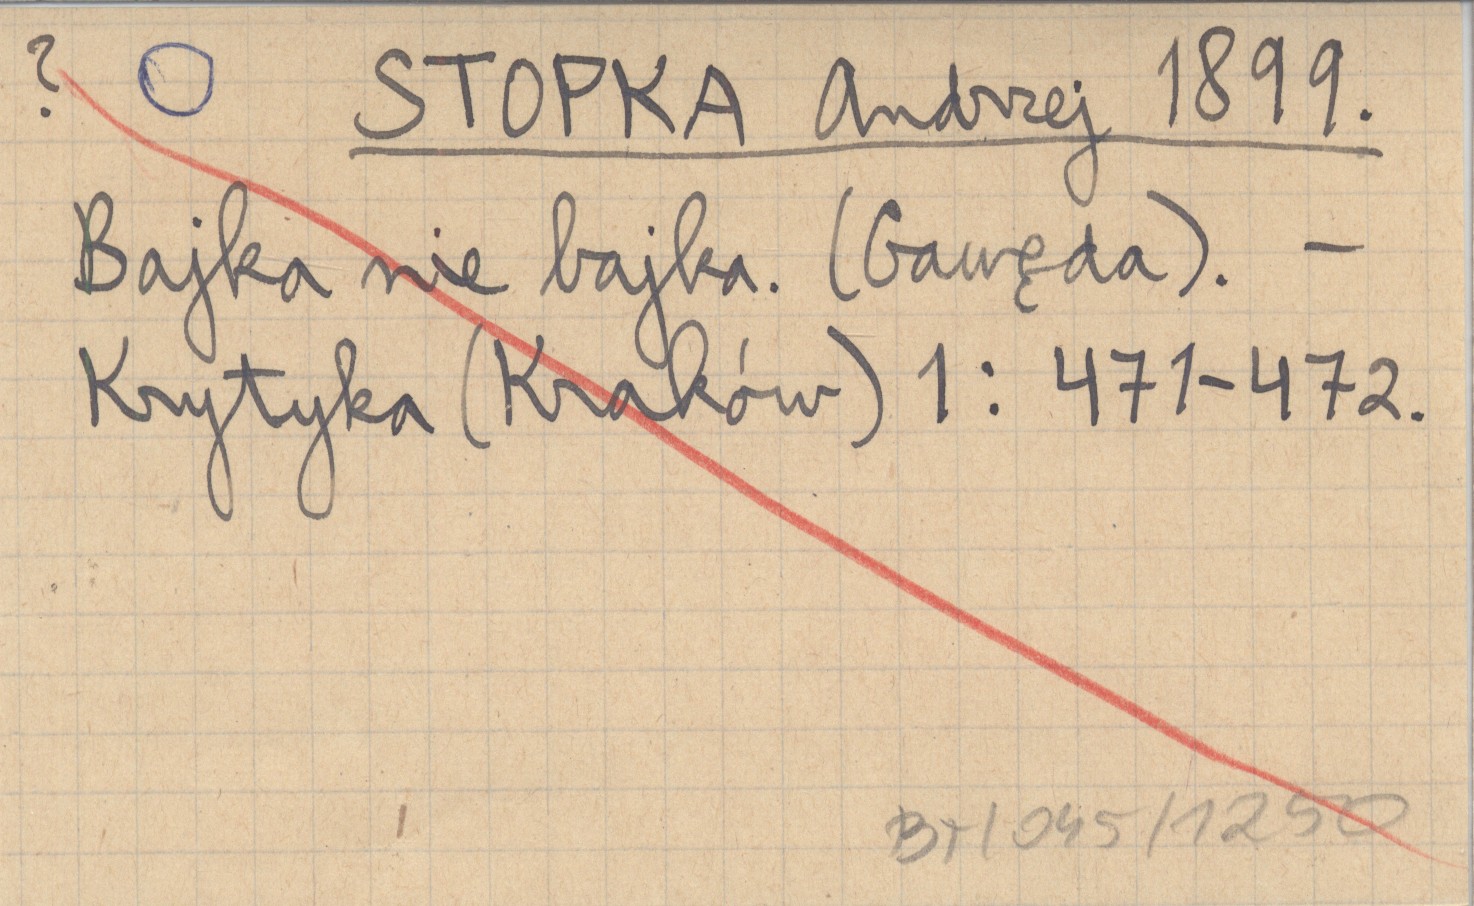 ? STOPKA Andrzej 1899.
Bajka nie bajka. (Gawęda). –
Krytyka (Kraków) 1: 471-472.
BT/045/1250